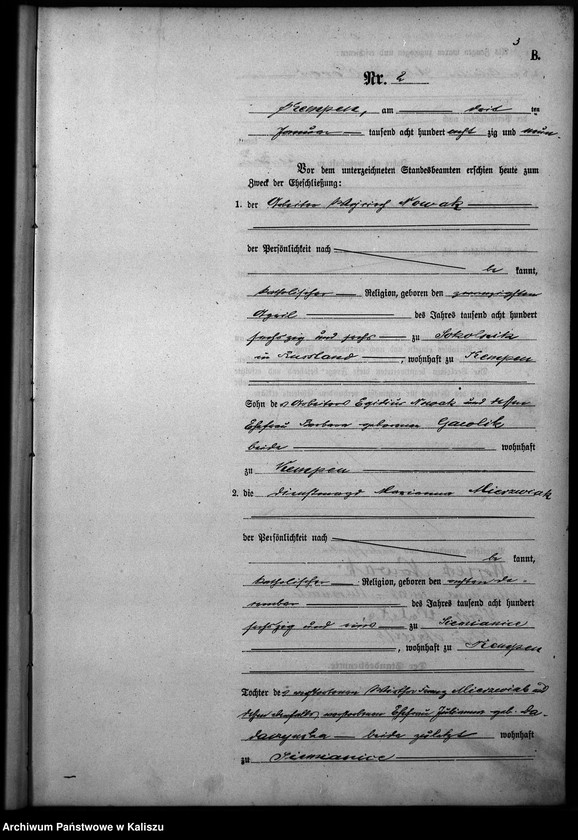 3
B.
Nr. 2
Kempen, am drei ten
Januar tausend acht hundert acht zig und neun
Vor dem unterzeichneten Standesbeamten erschien heute zum
Zweck der Eheschließung:
1. der Arbeiter Wojciech Nowak
der Persönlichkeit nach
be kannt,
katholischer Religion, geboren den zwanzigsten
April des Jahres tausend acht hundert
sechszig und sechs zu Sokolniki
in Russland, wohnhaft zu Kempen
Sohn des Arbeiters Egidius Nowak und dessen
Ehefrau Barbara geborenen
beide wohnhaft
zu Kempen
2. die Dienstmagd Marianna Mierzwiak
der Persönlichkeit nach
be kannt,
katholischer Religion, geboren den achten De-
zember des Jahres tausend acht hundert
sechszig und zu Siemianice
, wohnhaft zu Kempen
Tochter des verstorbenen Franz Mierzwiak und
dessen ebenfalls verstorbenen Ehefrau Julianna geb.
beide zuletzt wohnhaft
zu Siemianice
Archiwum Państwowe w Kaliszu